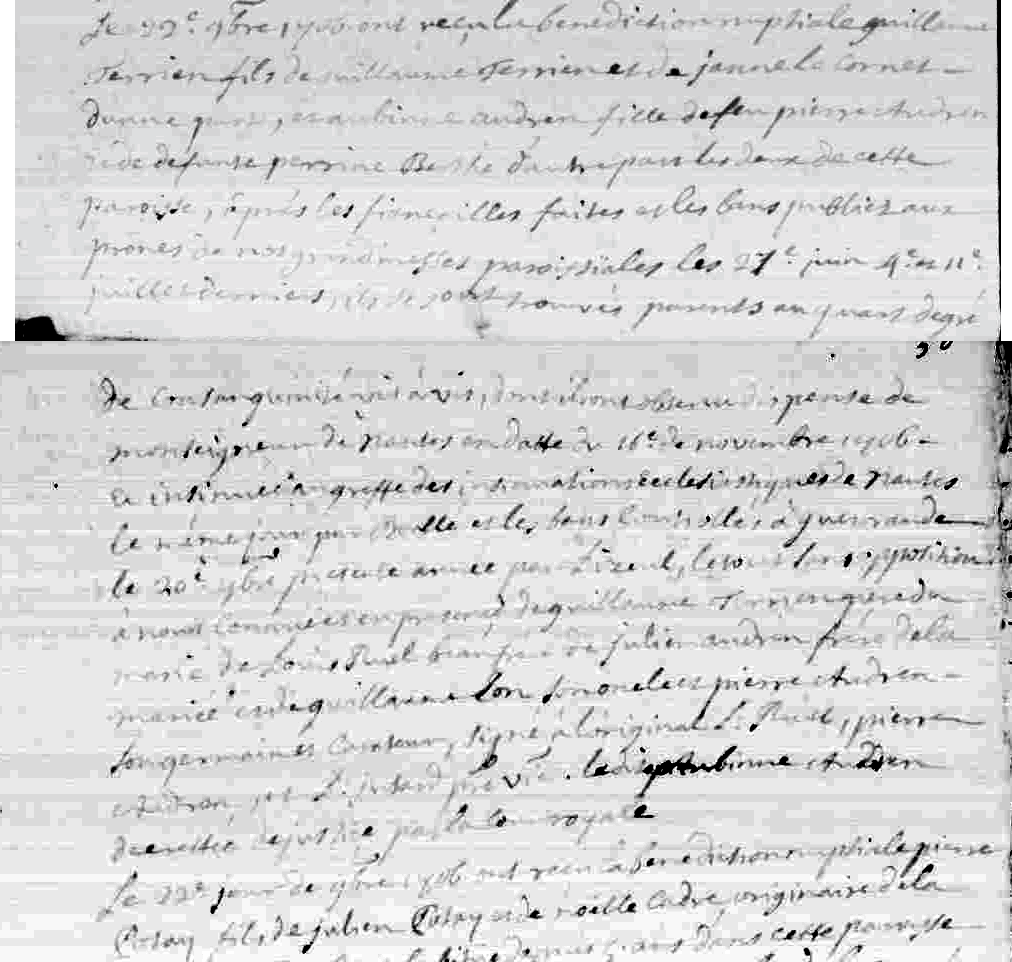 Le 22e 9bre 1706 ont reçu la benediction nuptiale guillaume
Terrien fils de guillaume Terrien et de janne le Cornet
d'une part, et aubinne audren fille de feu pierre Audren
et de defunte perrine Berthe d'autre part les deux de cette
paroisse, après les fiancailles faites et les bans publiez aux
prones de nos grandmesses paroissiales les 27e juin 4e et 11e
juillet derniers, ils se sont trouvés parents au quart degré
de Consanguinité vis à vis, dont ils ont obtenu dispense de
monseigneur de Nantes en datte du 16e de novembre 1706
et insinuée au greffe des insinuations ecclesiastiques de Nantes
le même jour par et les bans à guerrande
le 20e 9bre presente année par Lizeul, le tout sans opposition
à nous en presence de guillaume Terrien pere du
marié de Louis Ruel beaufrere de julien audren frere de la
mariée et de guillaume son oncle et pierre Audren
son germain et Curateur, signé à l'original L. Ruel, pierre
Audren, et . ladite Aubinne Audren
decrettée de justice par la Cour royale
Le 22e jour de 9bre 1706 ont recu la benediction nuptiale pierre
fils de julien et de noëlle Cadre originaire de la
ans dans cette paroisse